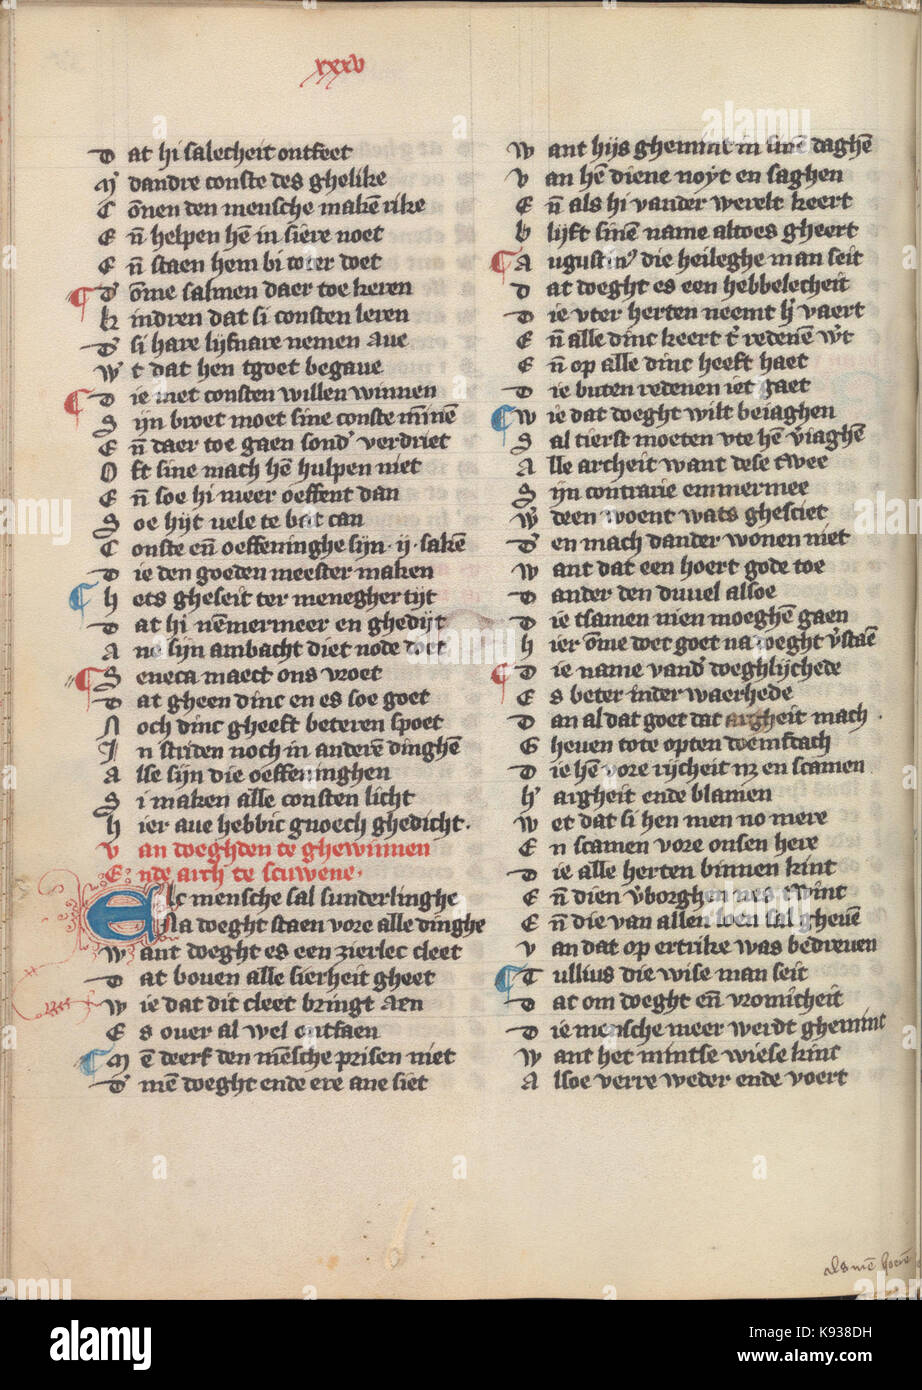 xxxv
D at hi salecheit ontfeet
M dandre conste des ghelike
C onen den mensche makē rike
E n̄ helpen hē in siere noet
E n̄ staen hem bi toter doet
D ōme salmen daer toe keren
K indren dat si consten leren
D si hare lijfnare nemen aue
W t dat hen tgoet begaue
D ie met consten willen winnen
S ijn broet moet sine conste mīnē
E n̄ daer toe gaen sond' verdriet
O ft sine mach hē hulpen niet
E n̄ soe hi meer oeffent dan
S oe hijt vele te bat can
C onste en̄ oeffeninghe sijn .ij. sakē
D ie den goeden meester maken
H ets gheseit ter menegher tijt
D at hi nēmermeer en ghedijt
A ne sijn ambacht diet node doet
S eneca maect ons vroet
D at gheen dinc en es soe goet
N och dinc gheeft beteren spoet
I n striden noch in anderē dinghē
A lse sijn die oeffeninghen
S i maken alle consten licht
H ier aue hebbic gnoech ghedicht.
V an doeghden te ghewinnen
E nde arch te scuwene.
Elc mensche sal sunderlinghe
Na doeght staen vore alle dinghe
W ant doeght es een zierlec cleet
D at bouen alle sierheit gheet
W ie dat dit cleet bringt aen
E s ouer al wel ontfaen
M ē deerf den mēsche prisen niet
D' mē doeght ende ere ane siet
W ant hijs ghemint in sinē daghē
V an hē diene noyt en saghen
E n̄ als hi vander werelt keert
B lijft sinē name altoes gheert
A ugustin' die heileghe man seit
D at doeght es een hebbelecheit
D ie vter herten neemt h' vaert
E n̄ alle dinc keert t' redenē w't
E n̄ op alle dinc heeft haet
D ie buten redenen iet gaet
W ie dat doeght wilt beiaghen
S al tierst moeten vte hē v'iaghē
A lle archeit want dese twee
S ijn contrarie emmermee
W' deen woent wats ghesciet
D' en mach dander wonen niet
W ant dat een hoert gode toe
D ander den duuel alsoe
D ie tsamen nien moeghē gaen
H ier ōme doet goet na doeght v'staē
D ie name vand' doeghlijchede
E s beter inder waerhede
D an al dat goet dat argheit mach.
G heuen tote opten doemsdach
D ie hē vore rijcheit nz en scamen
H' argheit ende blamen
W et dat si hen men no mere
E n scamen vore onsen here
D ie alle herten binnen kint
E n̄ dien v'borghen nes twint
E n̄ die van allen loen sal gheuē
V an dat op ertrike was bedreuen
T ullius die wise man seit
D at om doeght en̄ vromicheit
D ie mensche meer werdt ghemint
W ant het mintse wiese kint
A lsoe verre weder ende voert
als mē
alamy
K938DH
www.alamy.com